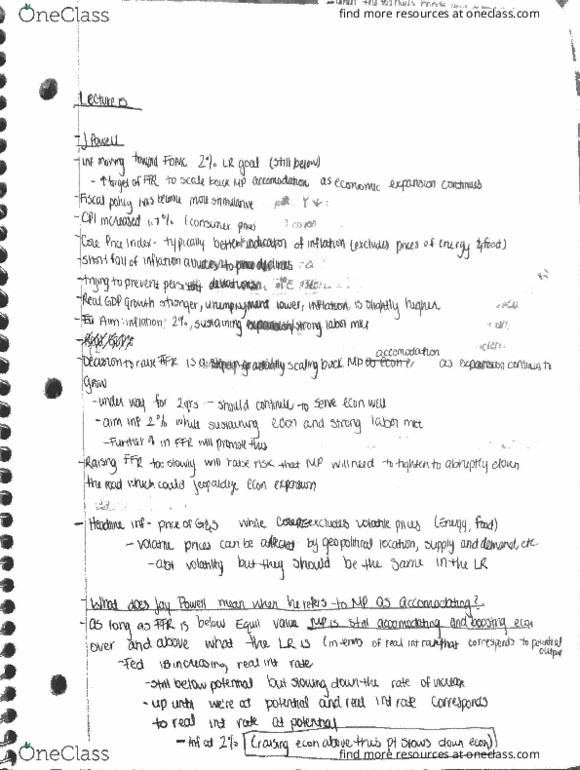 OneClass
find more resources at oneclass.com
Lecture
- J Powell
- Inf moving toward FOMC 2% LR goal (still below)
- ↑ target of FFR to scale back MP accomodation as economic expansion continues
- Fiscal policy has become more stimulative
- CPI increased 1.7% (consumer price
- Core Price Index - typically better indication of inflation (excludes prices of energy & food)
- Short fall of inflation
- trying to prevent
- Real GDP Growth stronger, unemployment lower, inflation is slightly higher
- Aim: inflation: 2%, sustaining strong labor mkt
accomodation
- Decision to raise FFR is scaling back MP as expansion continues to
Grow
- under way for 2yrs - should continue to serve econ well
- aim inf 2% while sustaining econ and strong labor mkt
- Further ↑ in FFR will promote this
- Raising FFR too slowly will raise risk that MP will need to tighten to abruptly down
the road which could jeopardize econ expansion
- Headline inf - price of G&S while core excludes volatile prices (Energy, food)
- volatile prices can be affected by geopolitical location, supply and demand, etc.
- volatility but they should be the same in the LR
- What does Jay Powell mean when he refers to MP as accomodating?
- as long as FFR is below Equil value MP is still accomodating and boosting econ
over and above what the LR is (in terms of real int rate that corresponds to potential
output
- Fed is increasing real int rate
- still below potential but slowing down the rate of
- up until we're at potential and real int rate corresponds
to real int rate at potential
- Inf at 2% (raising econ above this pt slows down econ)
OneClass
find more resources at oneclass.com